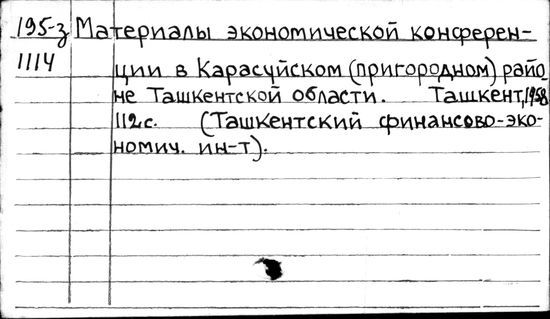 195-з Материалы экономической конферен-
1114
ции в Карасуйском (пригородном) райо
не Ташкентской области. Ташкент, 1958
112с. (Ташкентский финансово-эко-
номич. ин-т).